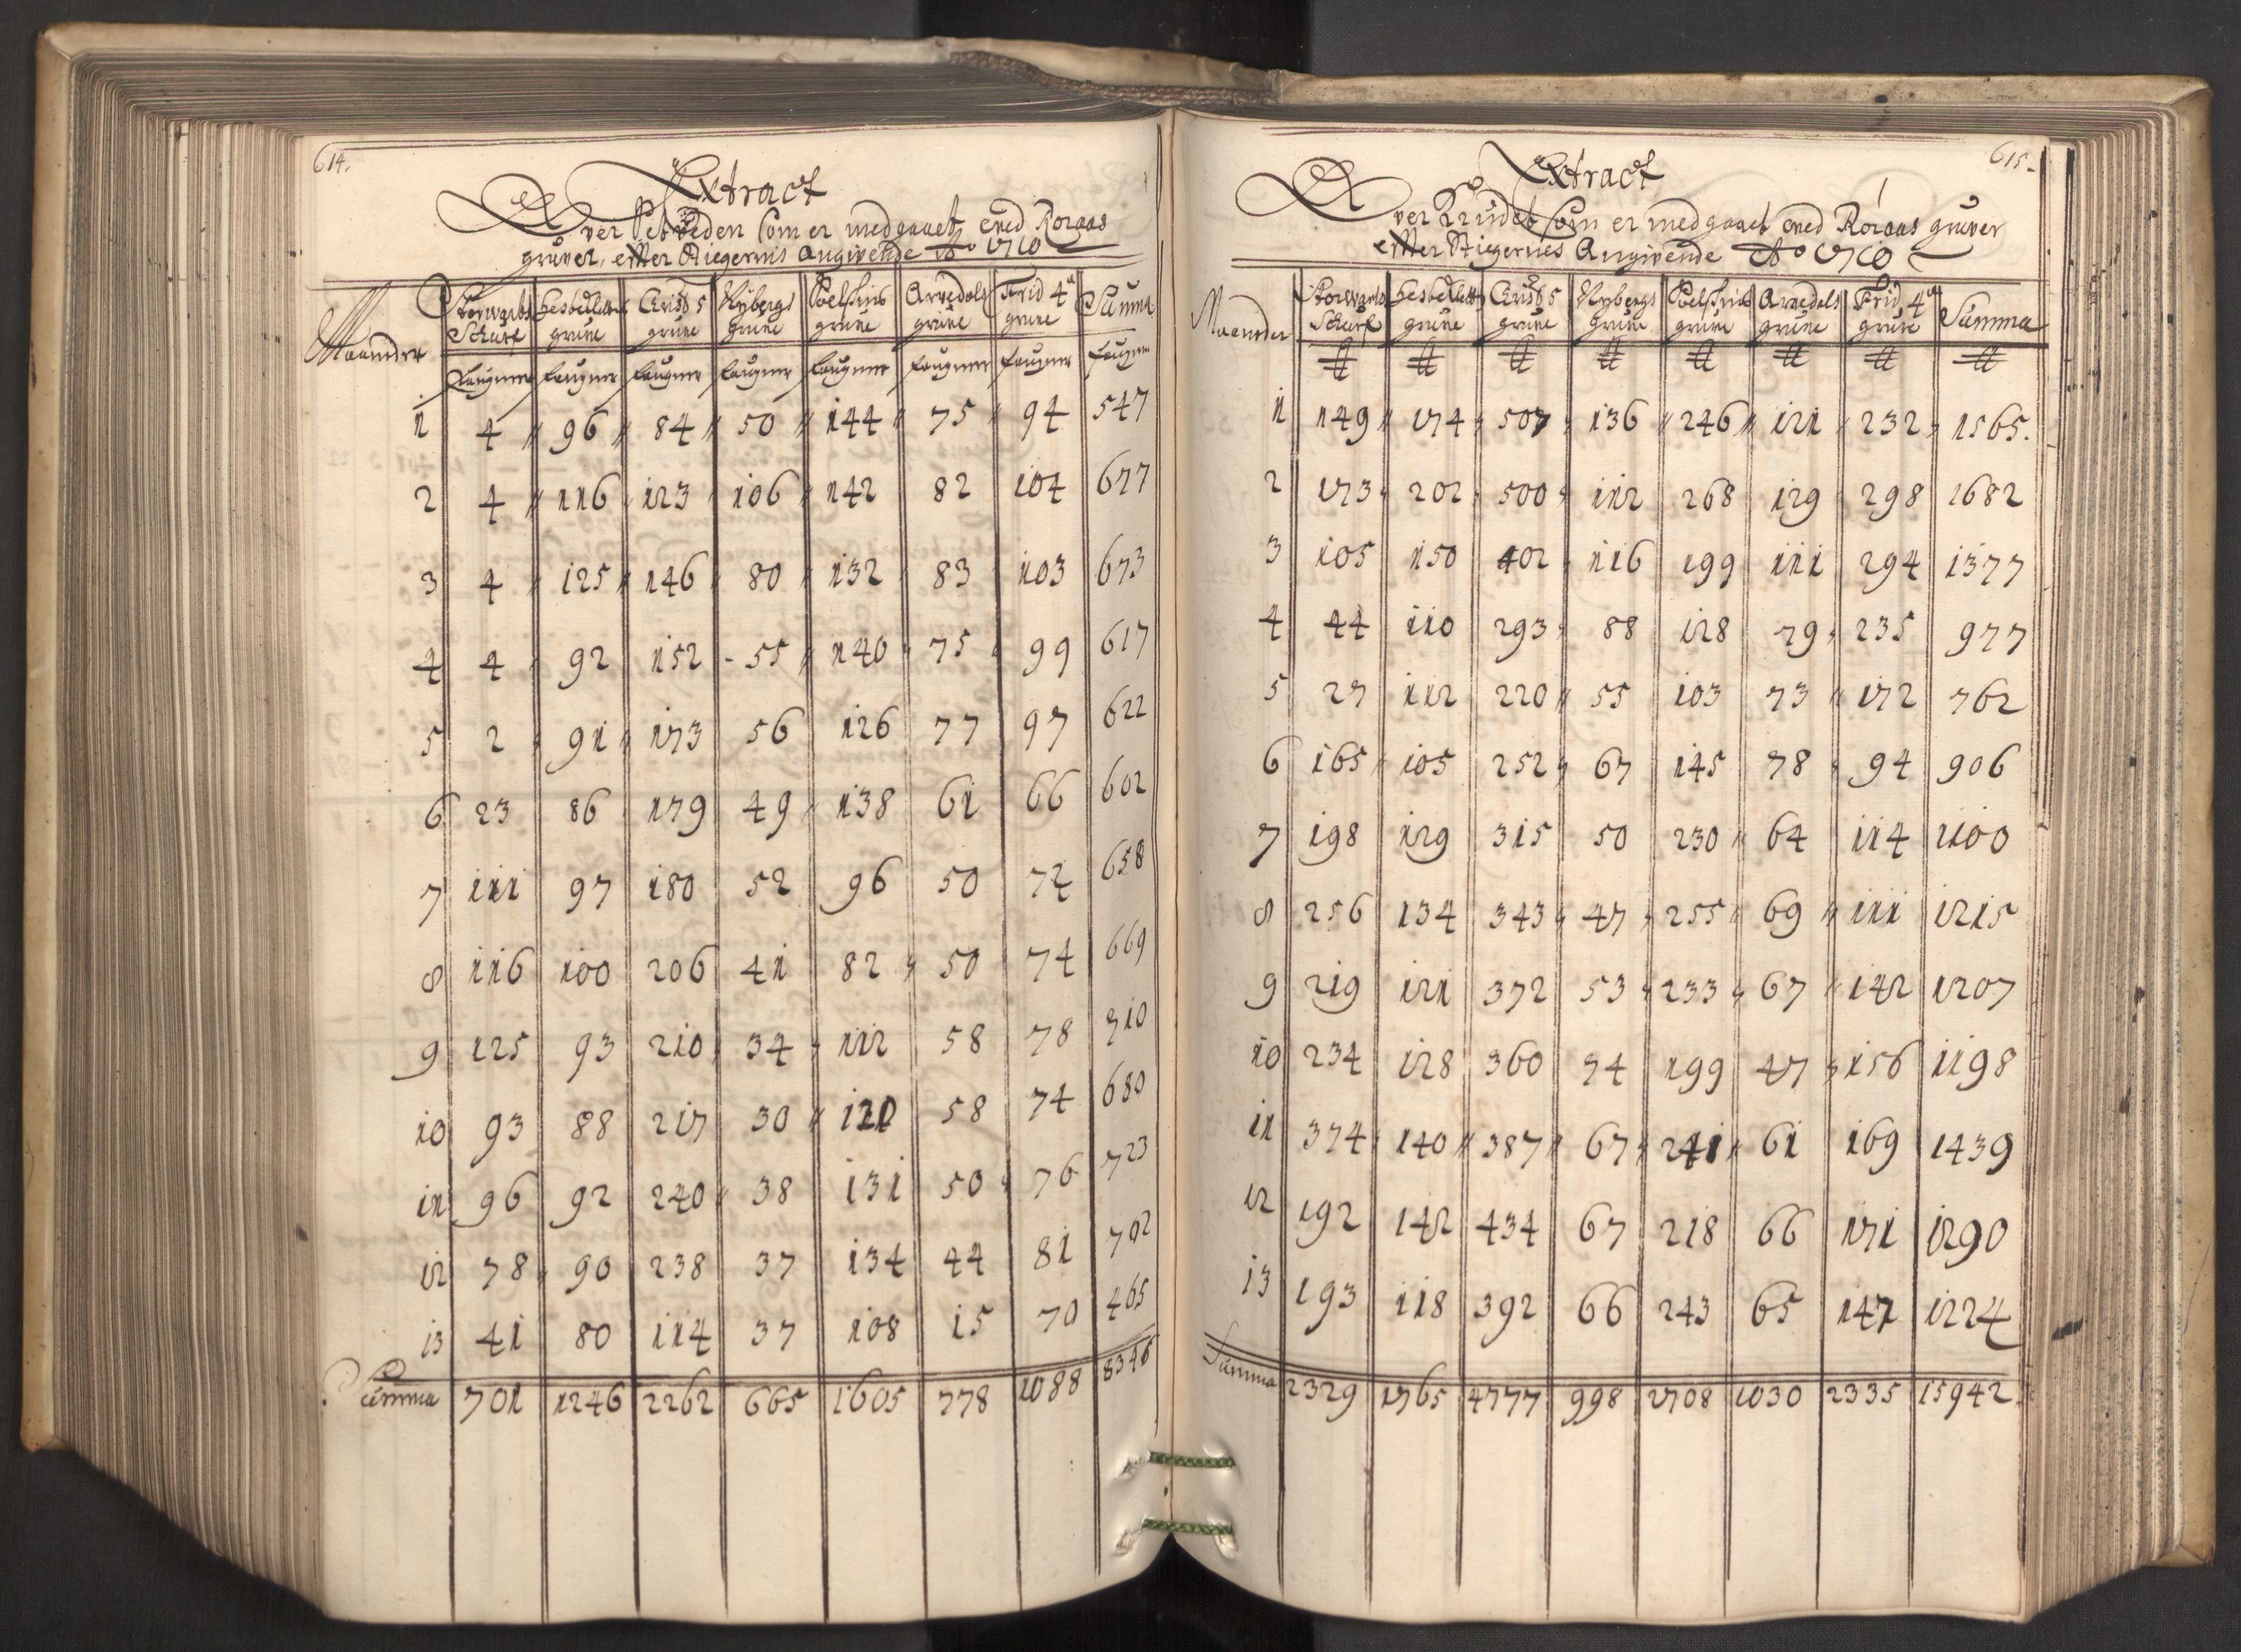 614.
Extract
Over Setveden Som er medgaaet ved Roraas
gruver, efter Stiegernis Angivende Ao 1710
Maaneder Storvarts Schurf Hestkletten grube Christ 5 grube Nybergs grube Soelskins grube Arvedals grube Frid 4a grube Summa
faugner faugner faugner faugner faugner faugner faugner faugner
1 4 96 84 50 144 75 94 547
2 4 116 123 106 142 82 104 677
3 4 125 146 80 132 83 103 673
4 4 92 152 55 140 75 99 617
5 2 91 173 56 126 77 97 622
6 23 86 179 49 138 61 66 602
7 111 97 180 52 96 50 72 658
8 116 100 206 41 82 50 74 669
9 125 93 210 34 112 58 78 710
10 93 88 217 30 120 58 74 680
11 96 92 240 38 131 50 76 723
12 78 90 238 37 134 44 81 702
13 41 80 114 37 108 15 70 465
Summa 701 1246 2262 665 1605 778 1088 8345
615.
Extract
Over Krudet Som er medgaaet ved Roraas gruver
efter Stigernes Angivende Ao 1710
Maaneder Storvarts Schurf Hestklett grube Christ 5 grube Nybergs grube Soelskins grube Arvedals grube Frid 4a grube Summa
℔ ℔ ℔ ℔ ℔ ℔ ℔ ℔
1 149 174 507 136 246 121 232 1565.
2 173 202 500 112 268 129 298 1682
3 105 150 402 116 199 111 294 1377
4 44 110 293 88 128 79 235 977
5 27 112 220 55 103 73 172 762
6 165 105 252 67 145 78 94 906
7 198 129 315 50 230 64 114 1100
8 256 134 343 47 255 69 111 1215
9 219 121 372 53 233 67 142 1207
10 234 128 360 74 199 47 156 1198
11 374 140 387 67 241 61 169 1439
12 192 142 434 67 218 66 171 1290
13 193 118 392 66 243 65 147 1224
Summa 2329 1765 4777 998 2708 1030 2335 15942